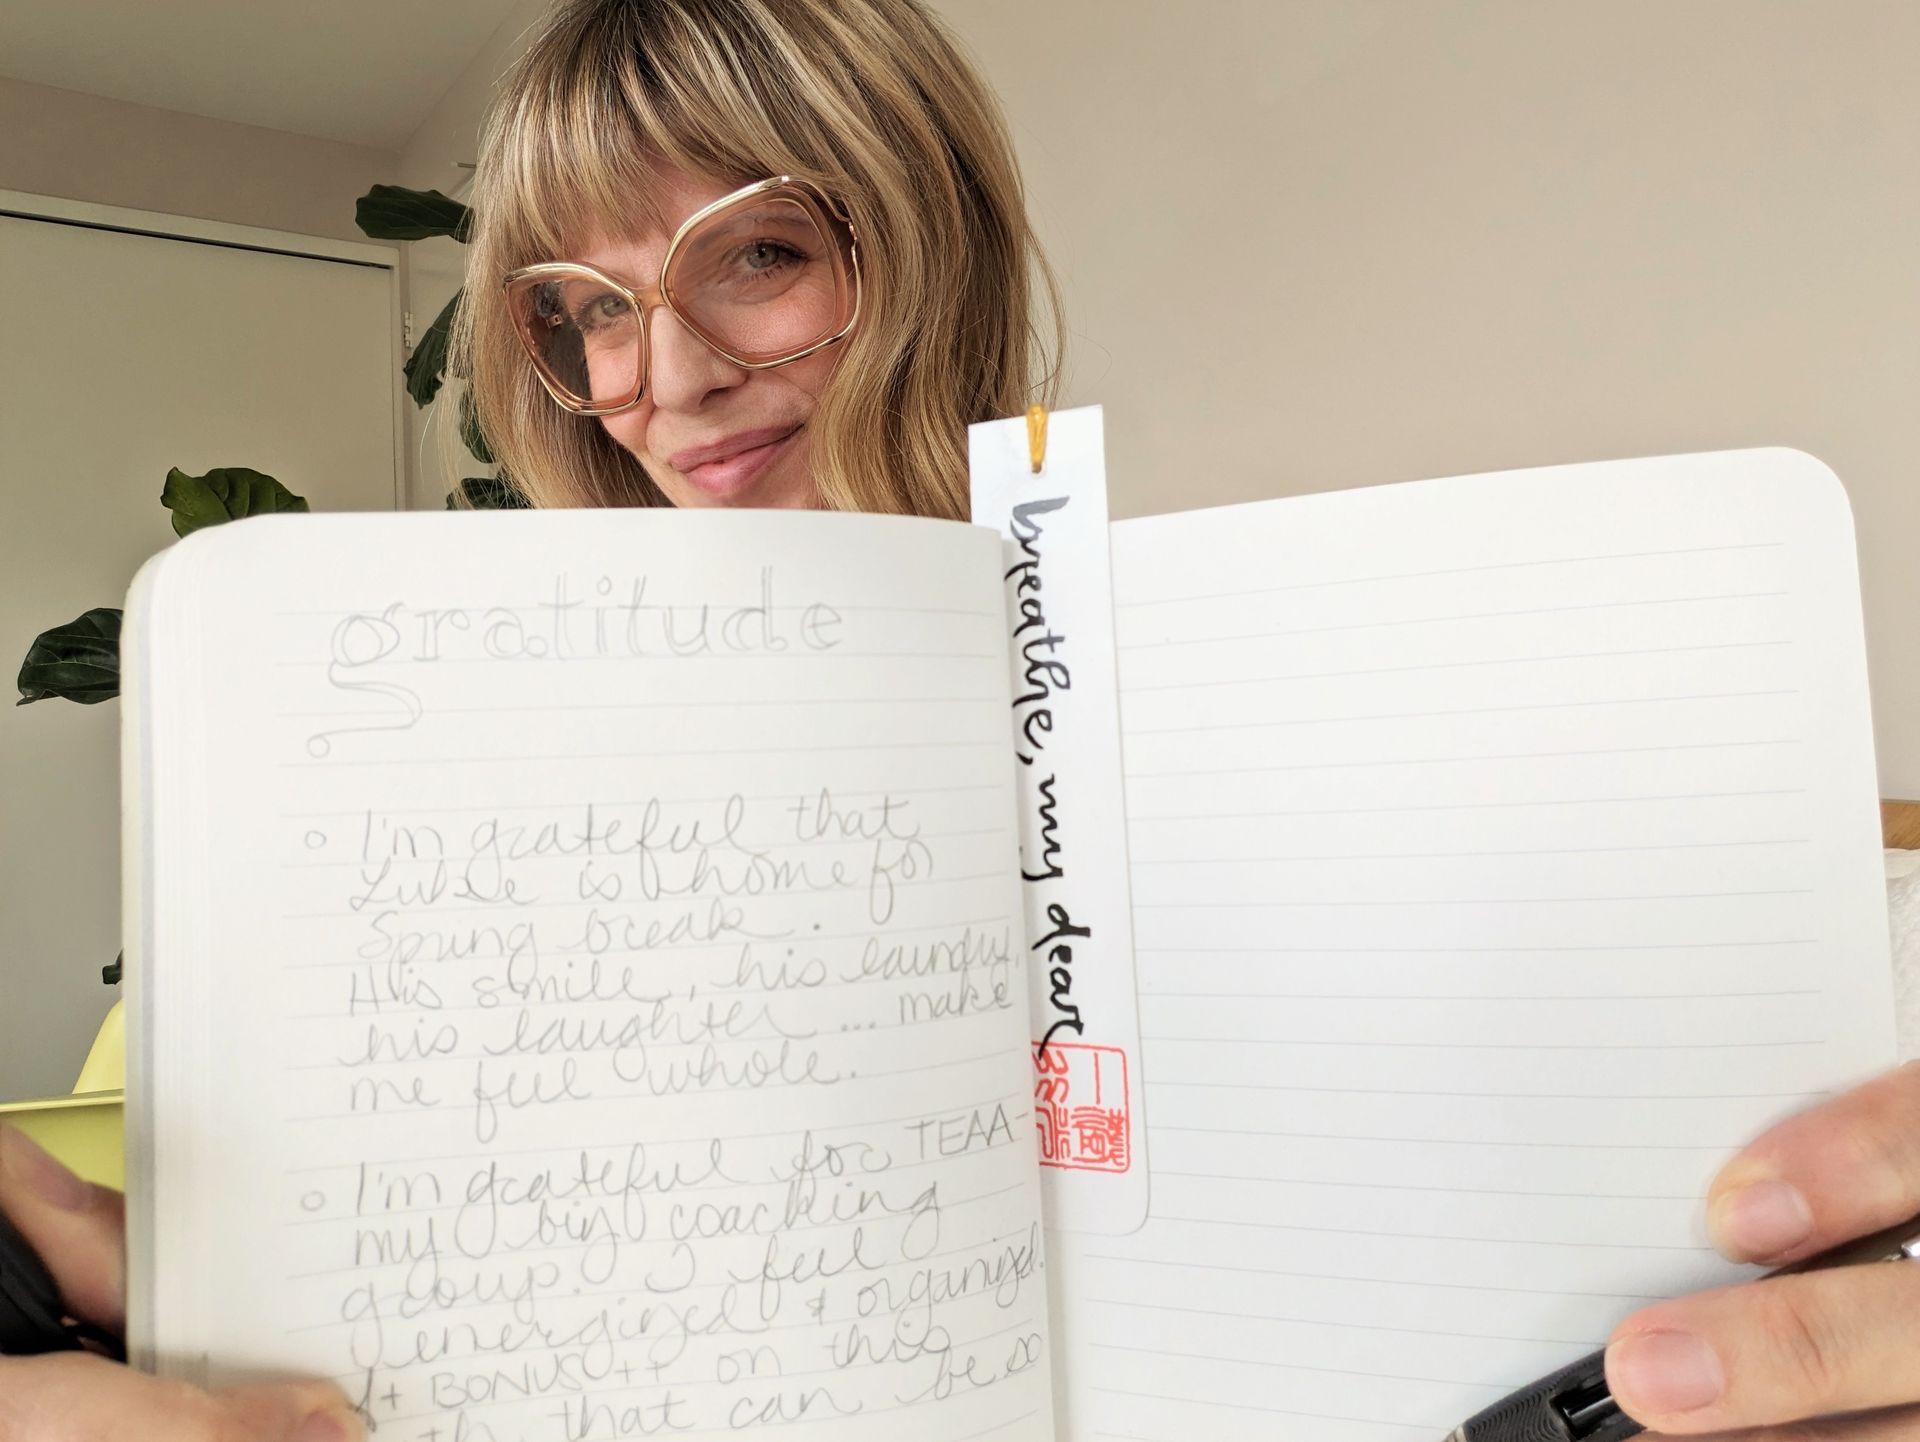 gratitude
I'm grateful that
Luke is home for
Spring break.
His smile, his laundry,
his laughter... make
me feel whole.
I'm grateful for TEAA-
my big coaching
group. I feel
energized & organized.
BONUS ++ on this
that can be so
breathe, my dear